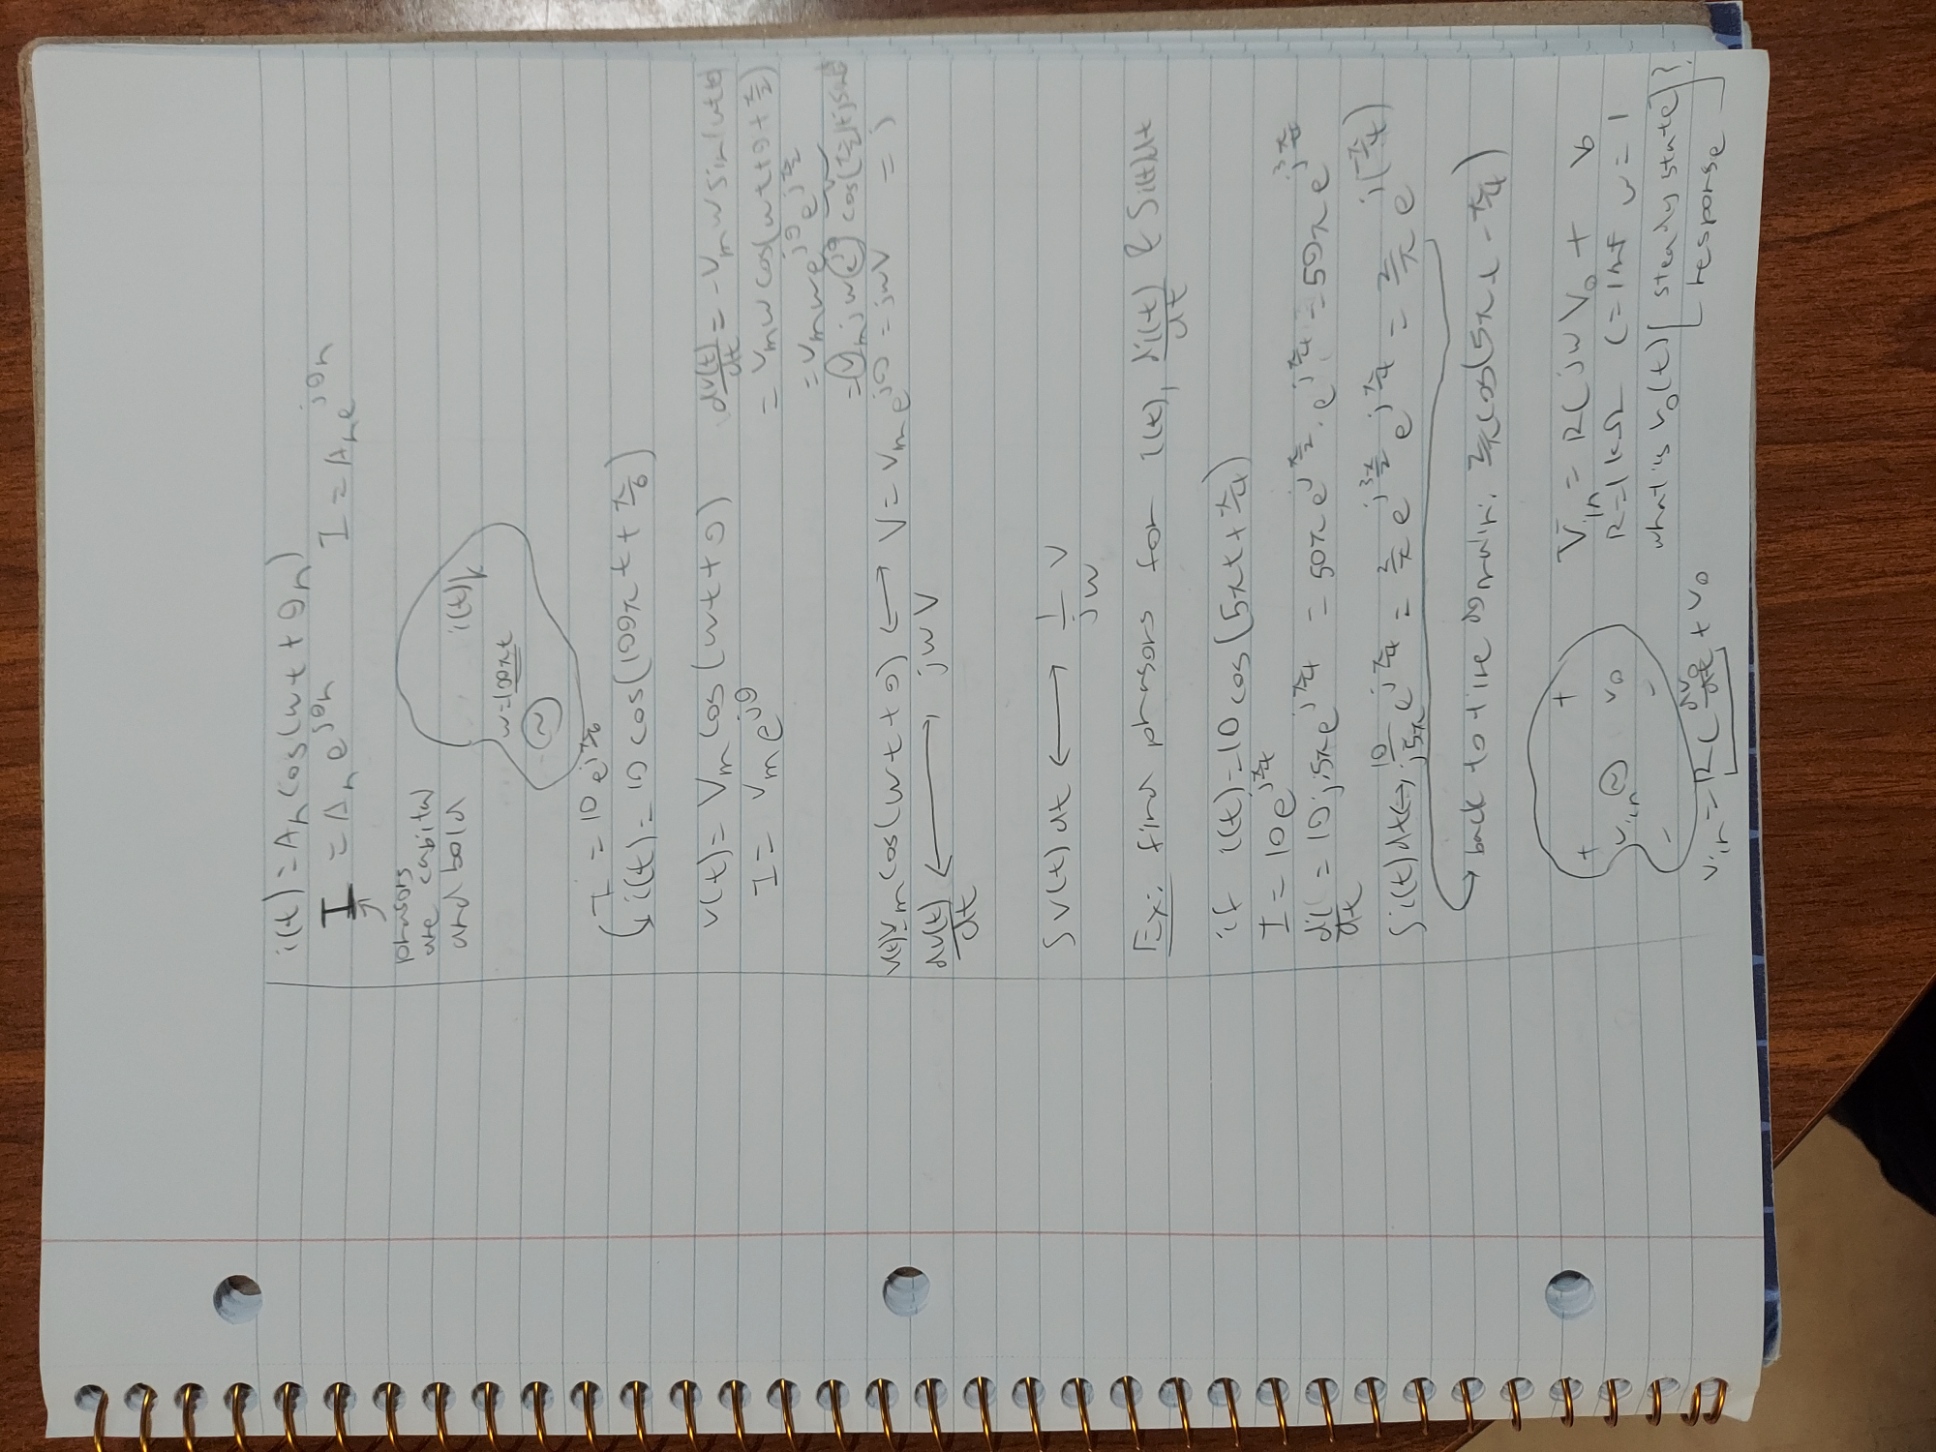 i(t) = Aₙ cos(wt + θₙ)
I = Aₙ e^{jθₙ}    I = Aₙ e^{jθₙ}
phasors
are capital
and bold
i(t)
w=100πt
~
I = 10 e^{jπ/6}
i(t) = 10 cos(100πt + π/6)
v(t) = Vₘ cos(wt + θ)
I = Vₘ e^{jθ}
dv(t)/dt = -Vₘ w sin(wt+θ)
= Vₘ w cos(wt + θ + π/2)
= Vₘ w e^{jθ} e^{jπ/2}
= Vₘ j w e^{jθ}  cos(π/2)+j sin
v(t)=Vₘ cos(wt + θ) ⟷ V = Vₘ e^{jθ} = jwV    = j
dv(t)/dt ⟷ jwV
∫v(t)dt ⟷ 1/jw V
Ex: find phasors for i(t), di(t)/dt & ∫i(t)dt
if i(t) = 10 cos(5πt + π/4)
I = 10 e^{jπ/4}
di/dt = 10 j·5π e^{jπ/4} = 50π e^{jπ/2} · e^{jπ/4} = 50π e^{j3π/4}
∫i(t)dt ↔ 10/j5π e^{jπ/4} = 2/π e^{j3π/2} e^{jπ/4} = 2/π e^{j(-π/4)}
back to time domain: 2/π cos(5πt - π/4)
+ +
vᵢₙ ~ v₀
- -
vᵢₙ = RC dv₀/dt + v₀
Vᵢₙ = RC jw V₀ + V₀
R=1kΩ C=1mF w=1
what is v₀(t) [steady state
response]?